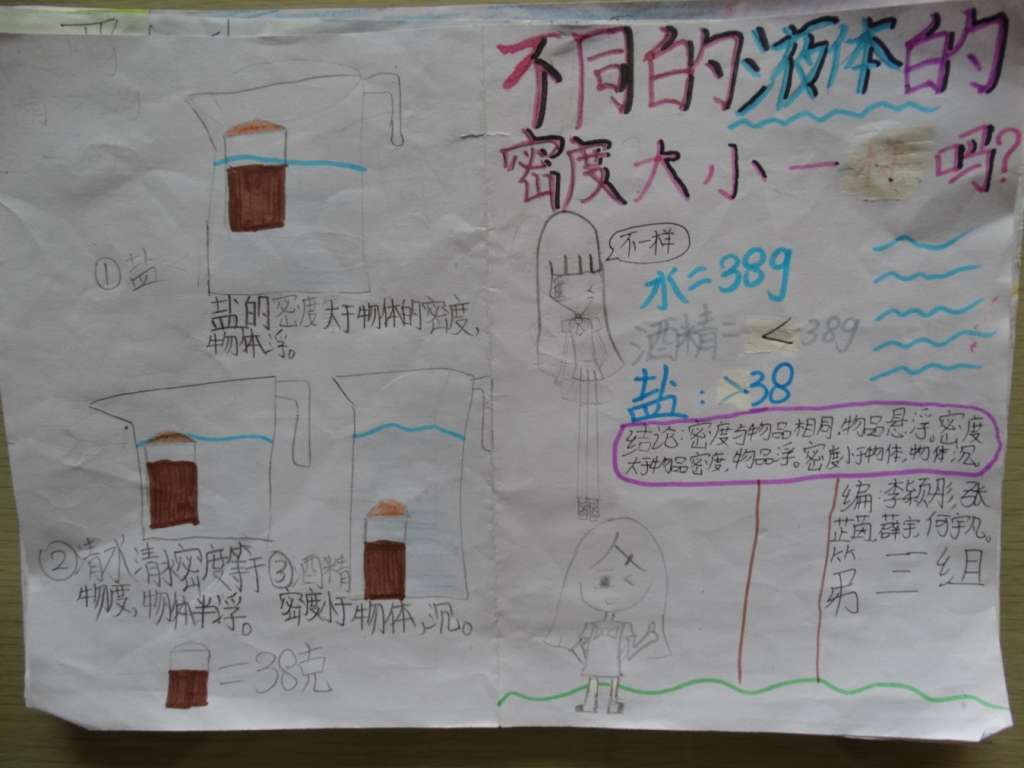 ①盐
盐的密度大于物体的密度,
物体浮。
②清水清水密度等于
物度,物体半浮。
③酒精
密度小于物体,沉。
=38克
不同的液体的
密度大小一样吗?
不一样
水=38g
酒精=<38g
盐:>38
结论:密度与物品相同,物品悬浮。密度
大于物品密度,物品浮。密度小于物体,物体沉。
编:李颖彤,张
芷茵,薛宇,何宇凡。
第三组